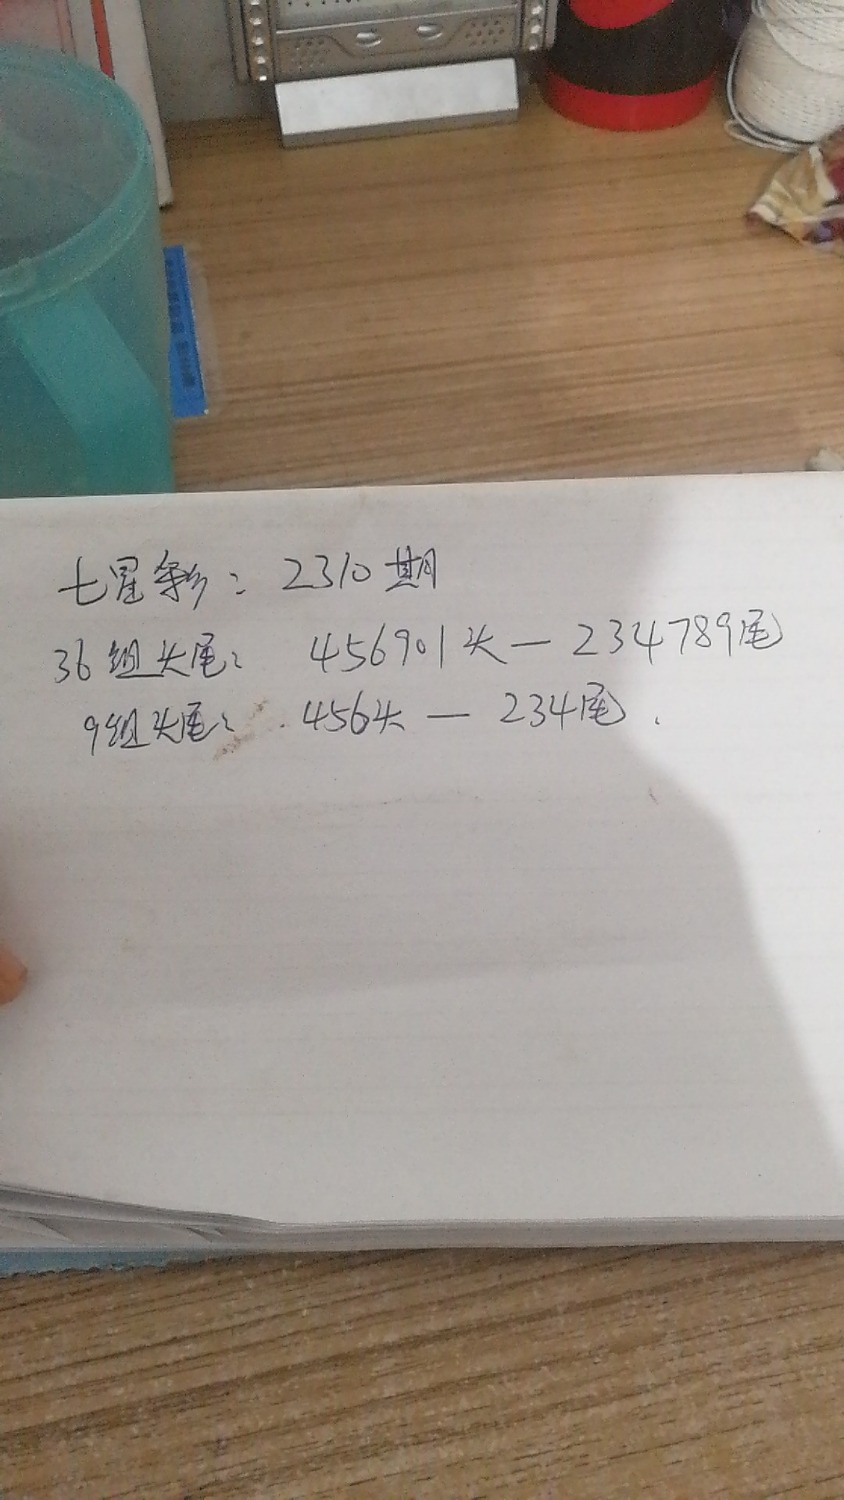 七星彩：2310期
36组头尾：456901头—234789尾
9组头尾：456头—234尾.